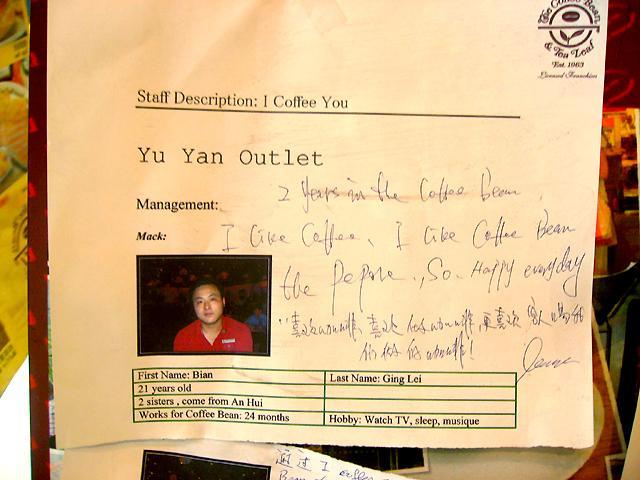 The Coffee Bean
& Tea Leaf
Est. 1963
Licensed Franchise
Staff Description: I Coffee You
Yu Yan Outlet
2 years in the Coffee Bean
Management:
Mack:
I like Coffee, I like Coffee Bean
the people, So Happy everyday
First Name: Bian
Last Name: Ging Lei
21 years old
2 sisters , come from An Hui
Works for Coffee Bean: 24 months
Hobby: Watch TV, sleep, musique
通过 I coffee